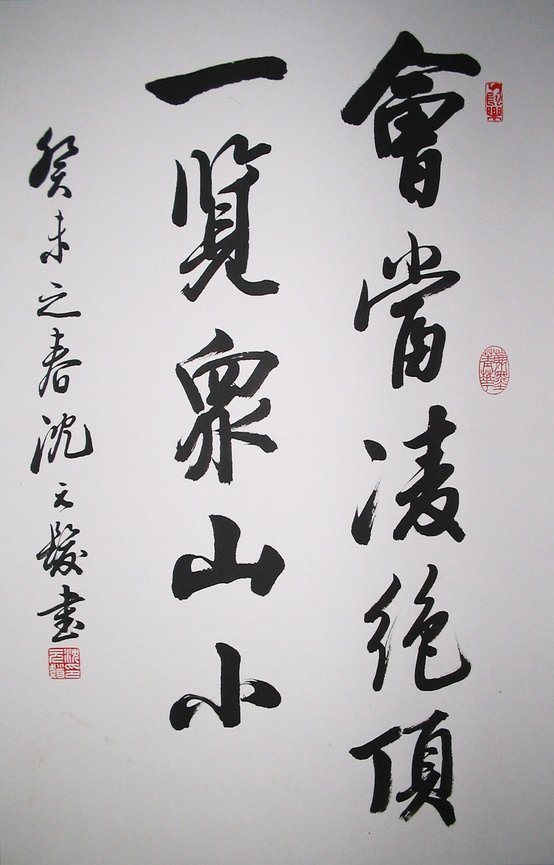 會當凌絕頂
一覧衆山小
癸未之春沈元发書